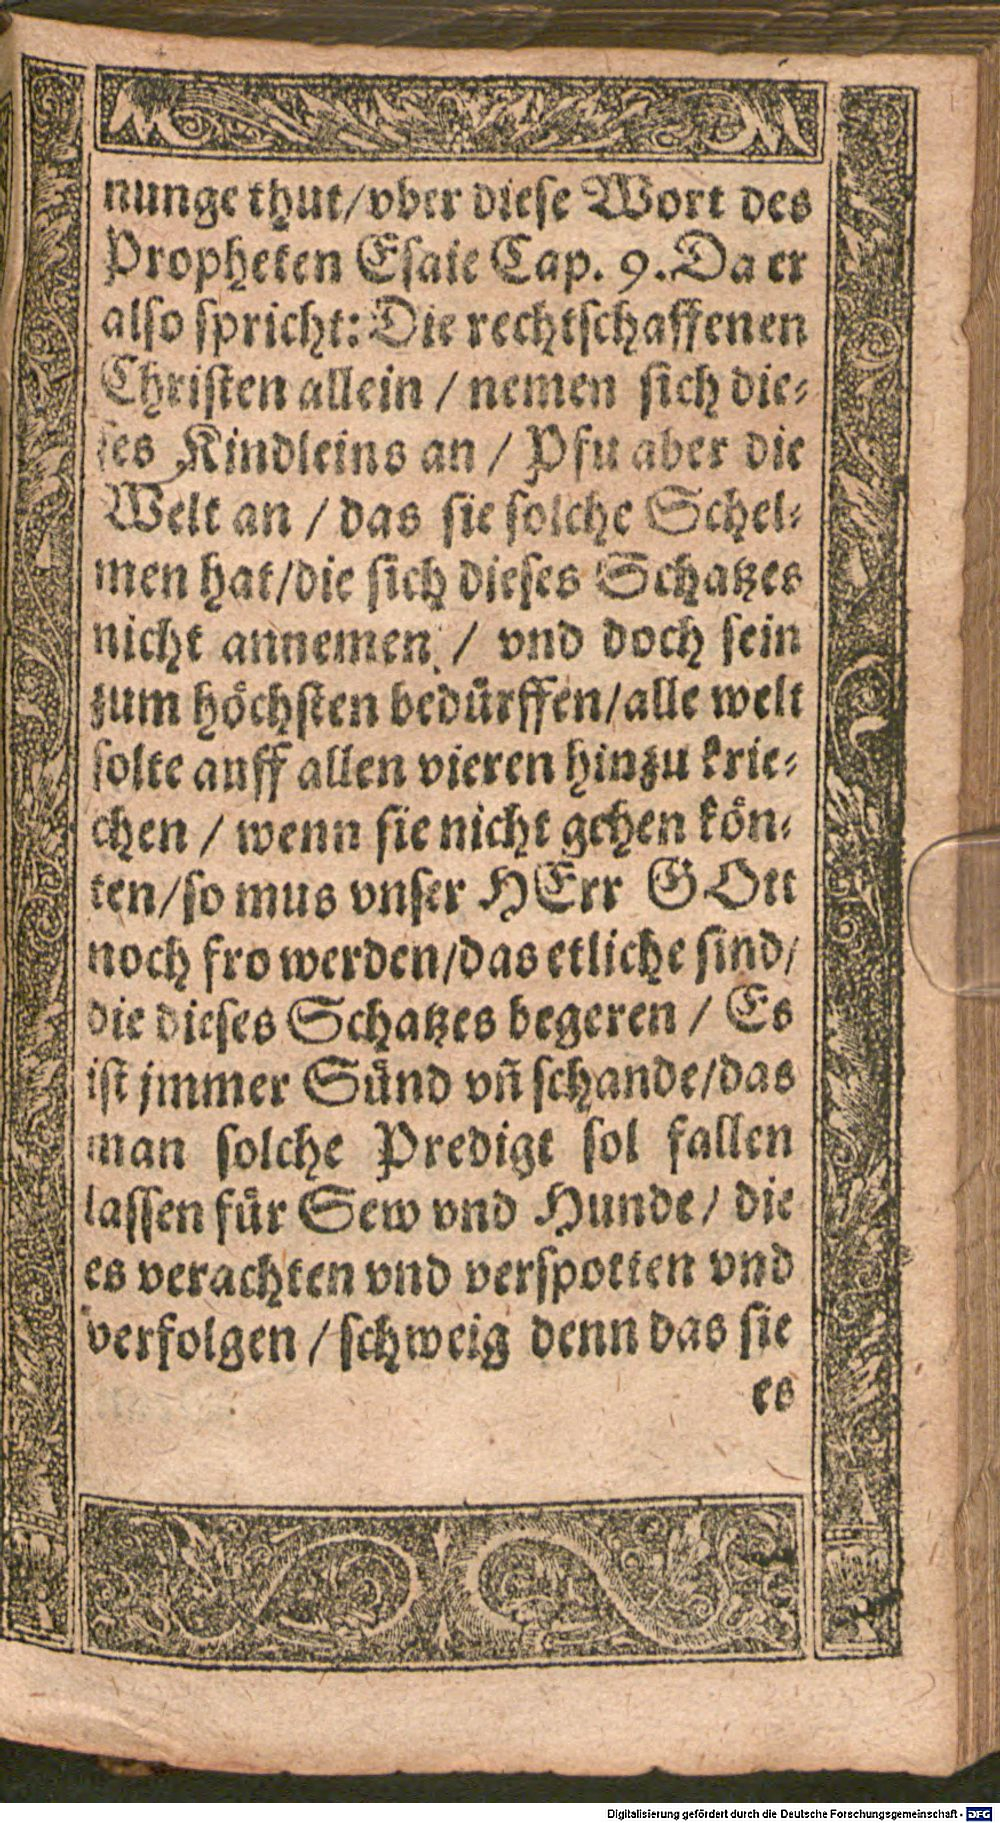 nunge thut/vber diese Wort des
Propheten Esaie Cap. 9. Da er
also spricht: Die rechtschaffenen
Christen allein / nemen sich die⸗
ses Kindleins an / Pfu aber die
Welt an / das sie solche Schel⸗
men hat/die sich dieses Schatzes
nicht annemen / vnd doch sein
zum höchsten bedürffen/alle welt
solte auff allen vieren hinzu krie⸗
chen / wenn sie nicht gehen kön⸗
ten/so mus vnser HErr GOtt
noch fro werden/das etliche sind/
die dieses Schatzes begeren / Es
ist jmmer Sünd vñ schande/das
man solche Predigt sol fallen
lassen für Sew vnd Hunde/ die
es verachten vnd verspotten vnd
verfolgen / schweig denn das sie
es
Digitalisierung gefördert durch die Deutsche Forschungsgemeinschaft - DFG